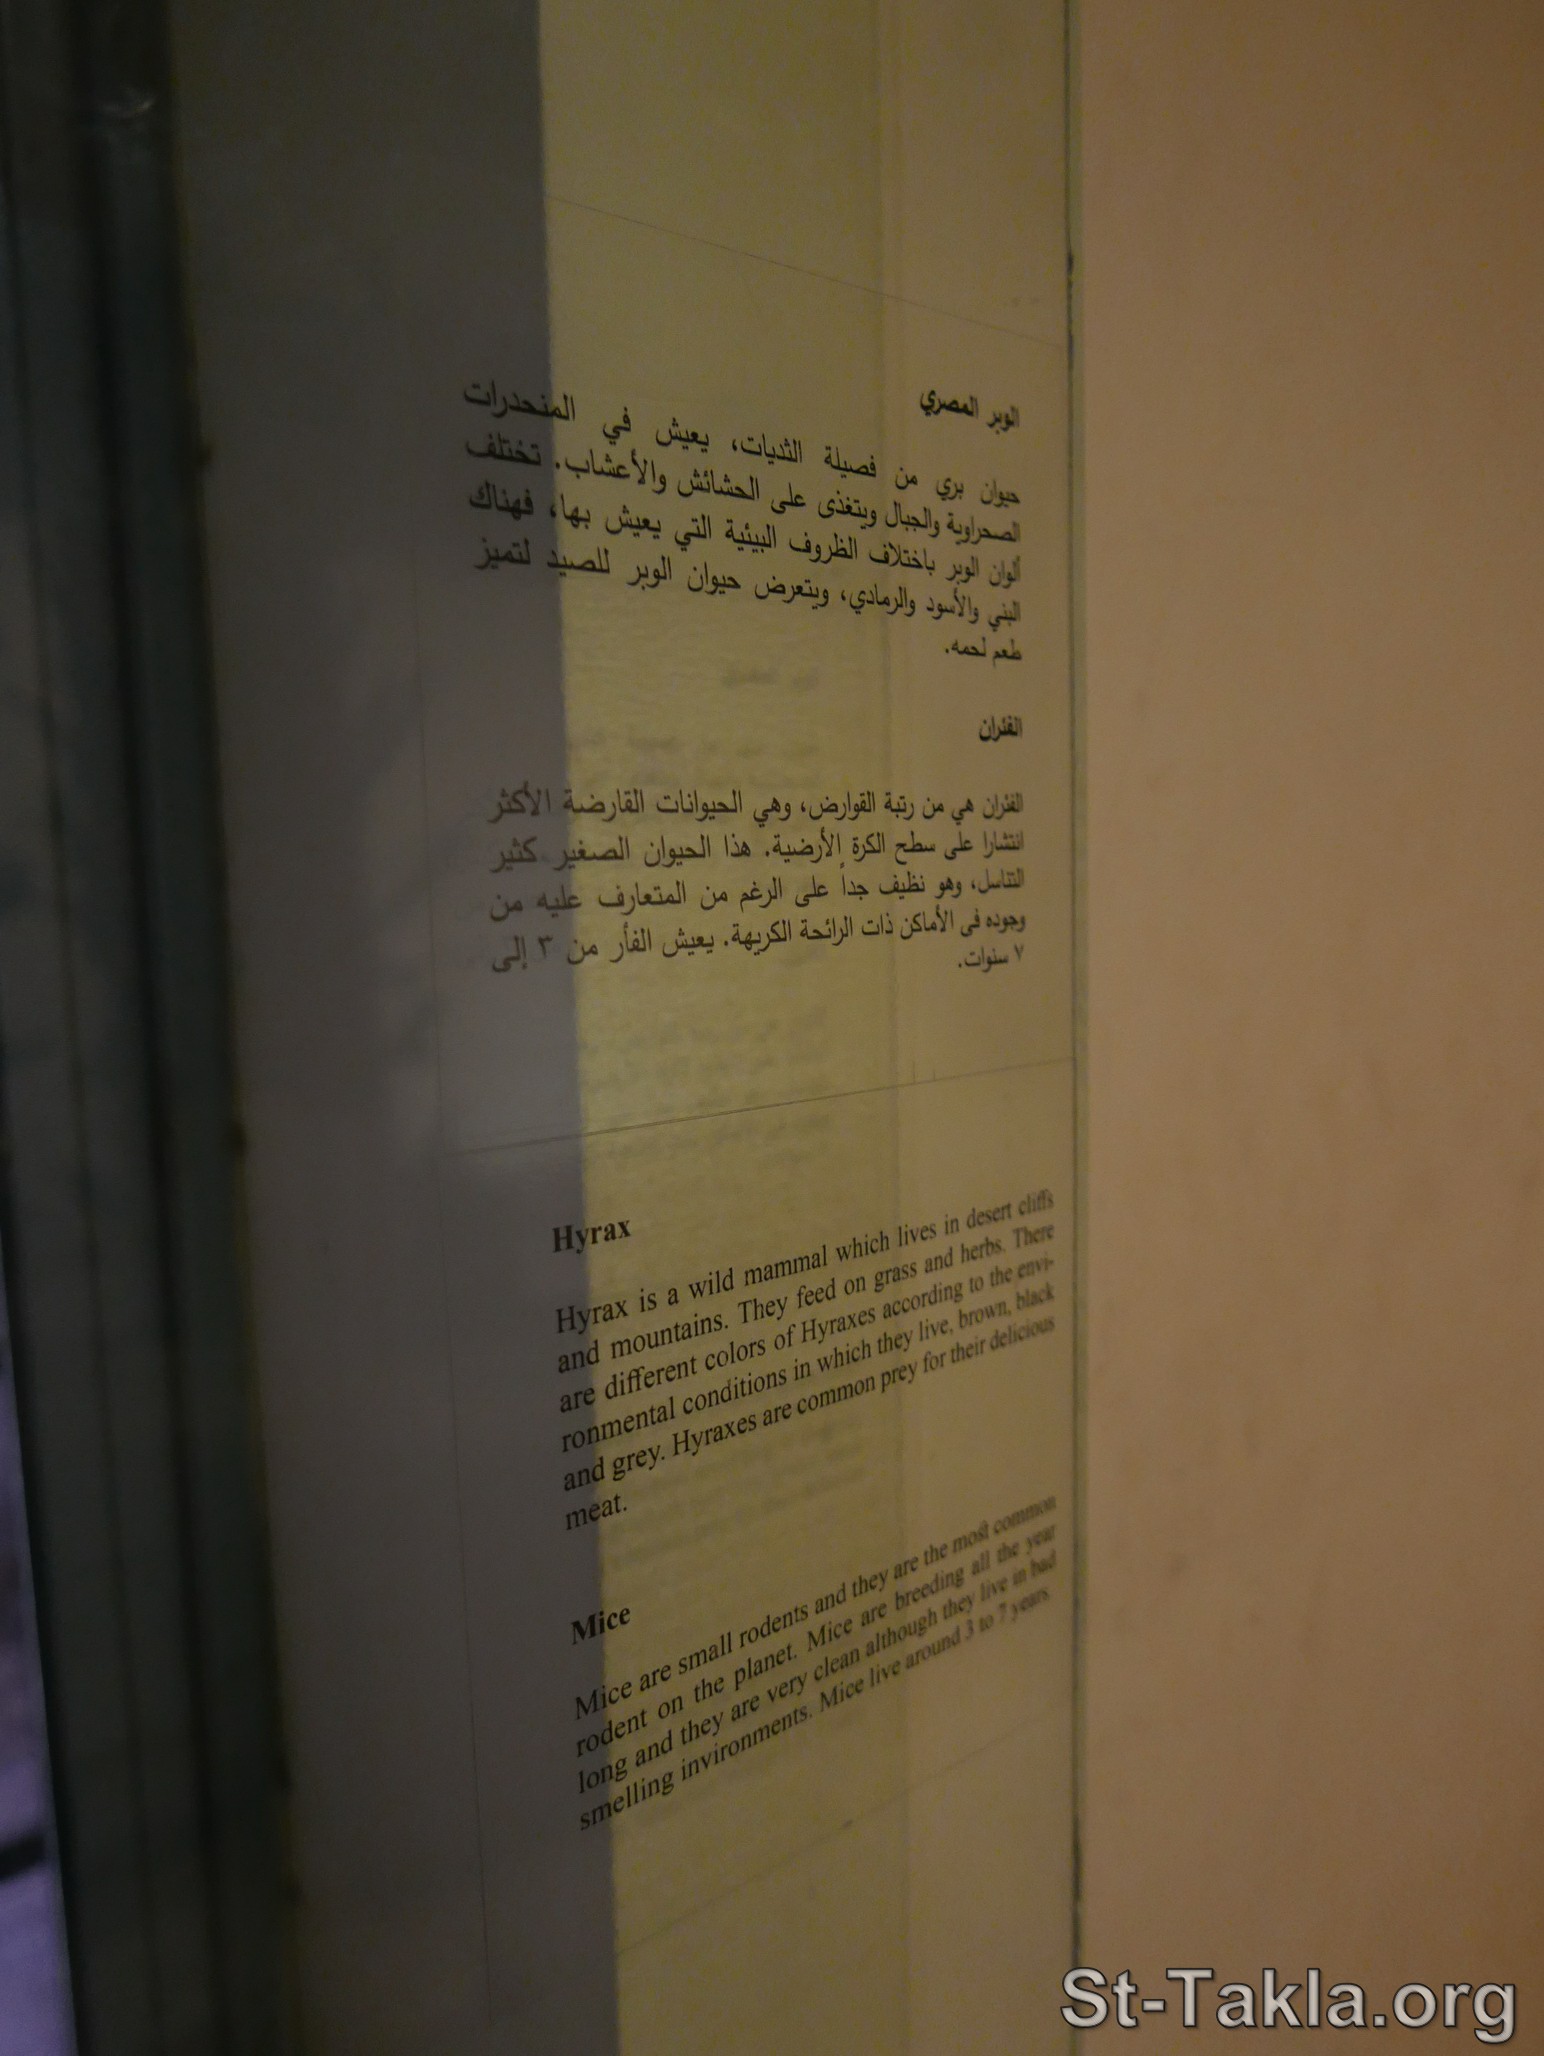 الوبر المصري
حيوان بري من فصيلة الثديات، يعيش في المنحدرات
الصحراوية والجبال ويتغذى على الحشائش والأعشاب. تختلف
ألوان الوبر باختلاف الظروف البيئية التي يعيش بها، فهناك
البني والأسود والرمادي، ويتعرض حيوان الوبر للصيد لتميز
طعم لحمه.
الفئران
الفئران هي من رتبة القوارض، وهي الحيوانات القارضة الأكثر
انتشارا على سطح الكرة الأرضية. هذا الحيوان الصغير كثير
التناسل، وهو نظيف جداً على الرغم من المتعارف عليه من
وجوده فى الأماكن ذات الرائحة الكريهة. يعيش الفأر من ٣ إلى
٧ سنوات.
Hyrax
Hyrax is a wild mammal which lives in desert cliffs
and mountains. They feed on grass and herbs. There
are different colors of Hyraxes according to the envi-
ronmental conditions in which they live, brown, black
and grey. Hyraxes are common prey for their delicious
meat.
Mice
Mice are small rodents and they are the most common
rodent on the planet. Mice are breeding all the year
long and they are very clean although they live in bad
smelling invironments. Mice live around 3 to 7 years.
St-Takla.org